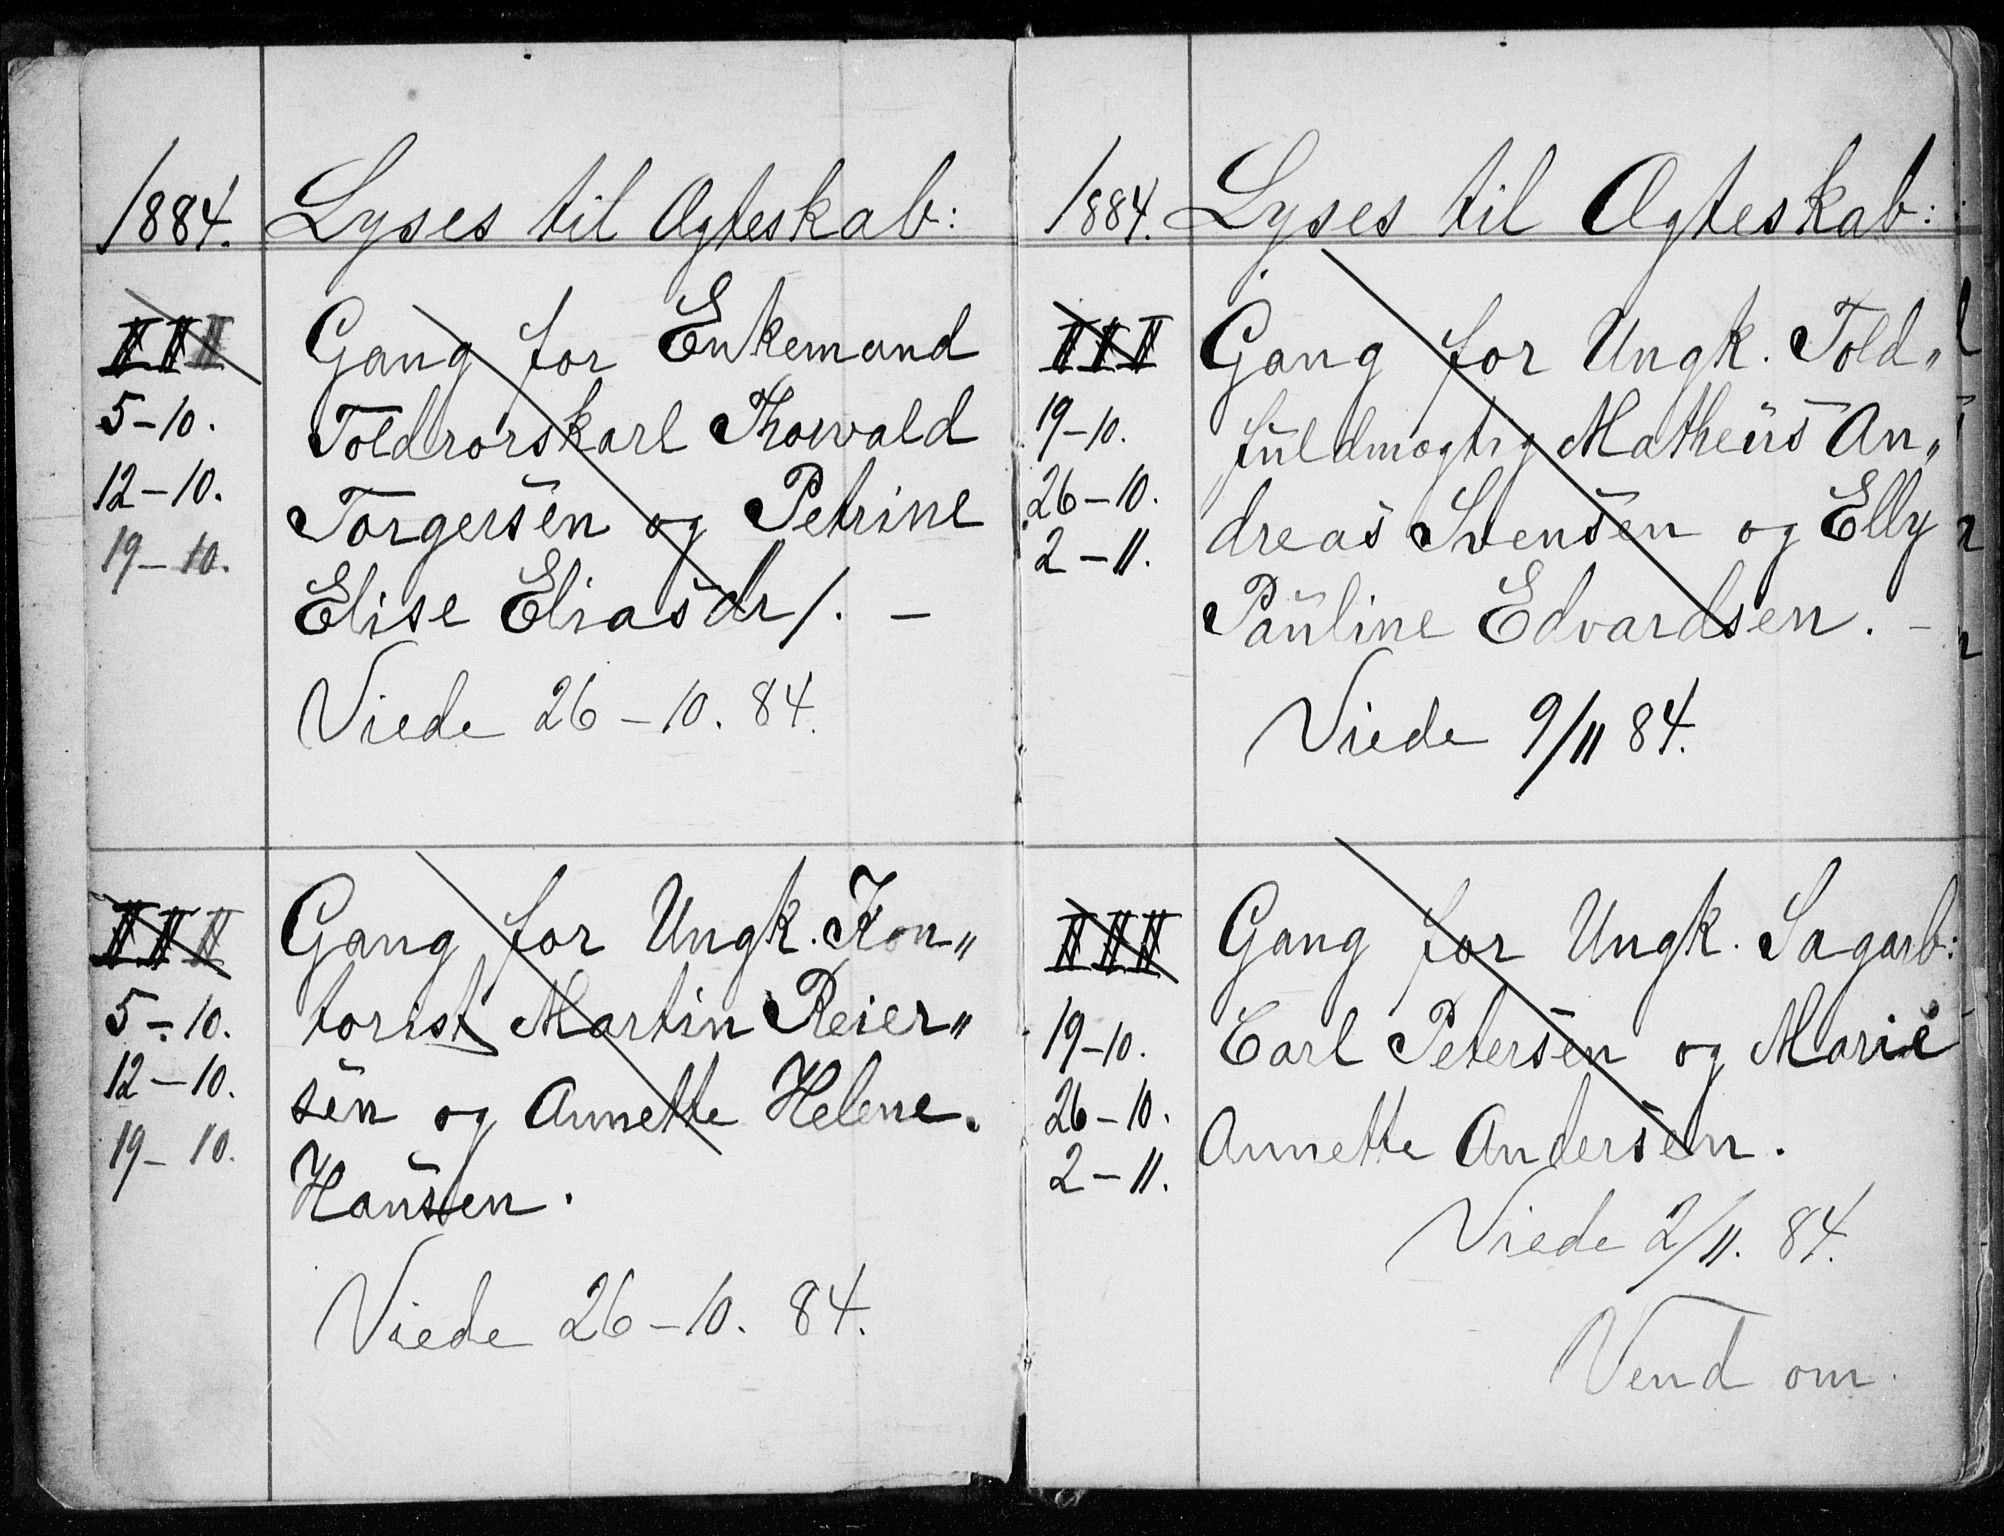 1884. Lyses til Ægteskab:
III
5-10.
12-10.
19-10.
Gang for Enkemand
Toldrorskarl Thorvald
Torgersen og Petrine
Elise Eliasdr/. –
Viede 26-10. 84.
III
5-10.
12-10.
19-10.
Gang for Ungk. Kon„
torist Martin Reier„
sen og Annette Helene.
Hansen.
Viede 26-10. 84.
1884. Lyses til Ægteskab:
III
19-10.
26-10.
2-11.
Gang for Ungk. Told„
fuldmægtig Matheus An„
dreas Svensen og Elly
Pauline Edvardsen. –
Viede 9/11 84.
III
19-10.
26-10.
2-11.
Gang for Ungk. Sagarb:
Carl Petersen og Marie
Annette Andersen.
Viede 2/11. 84.
Vend om.